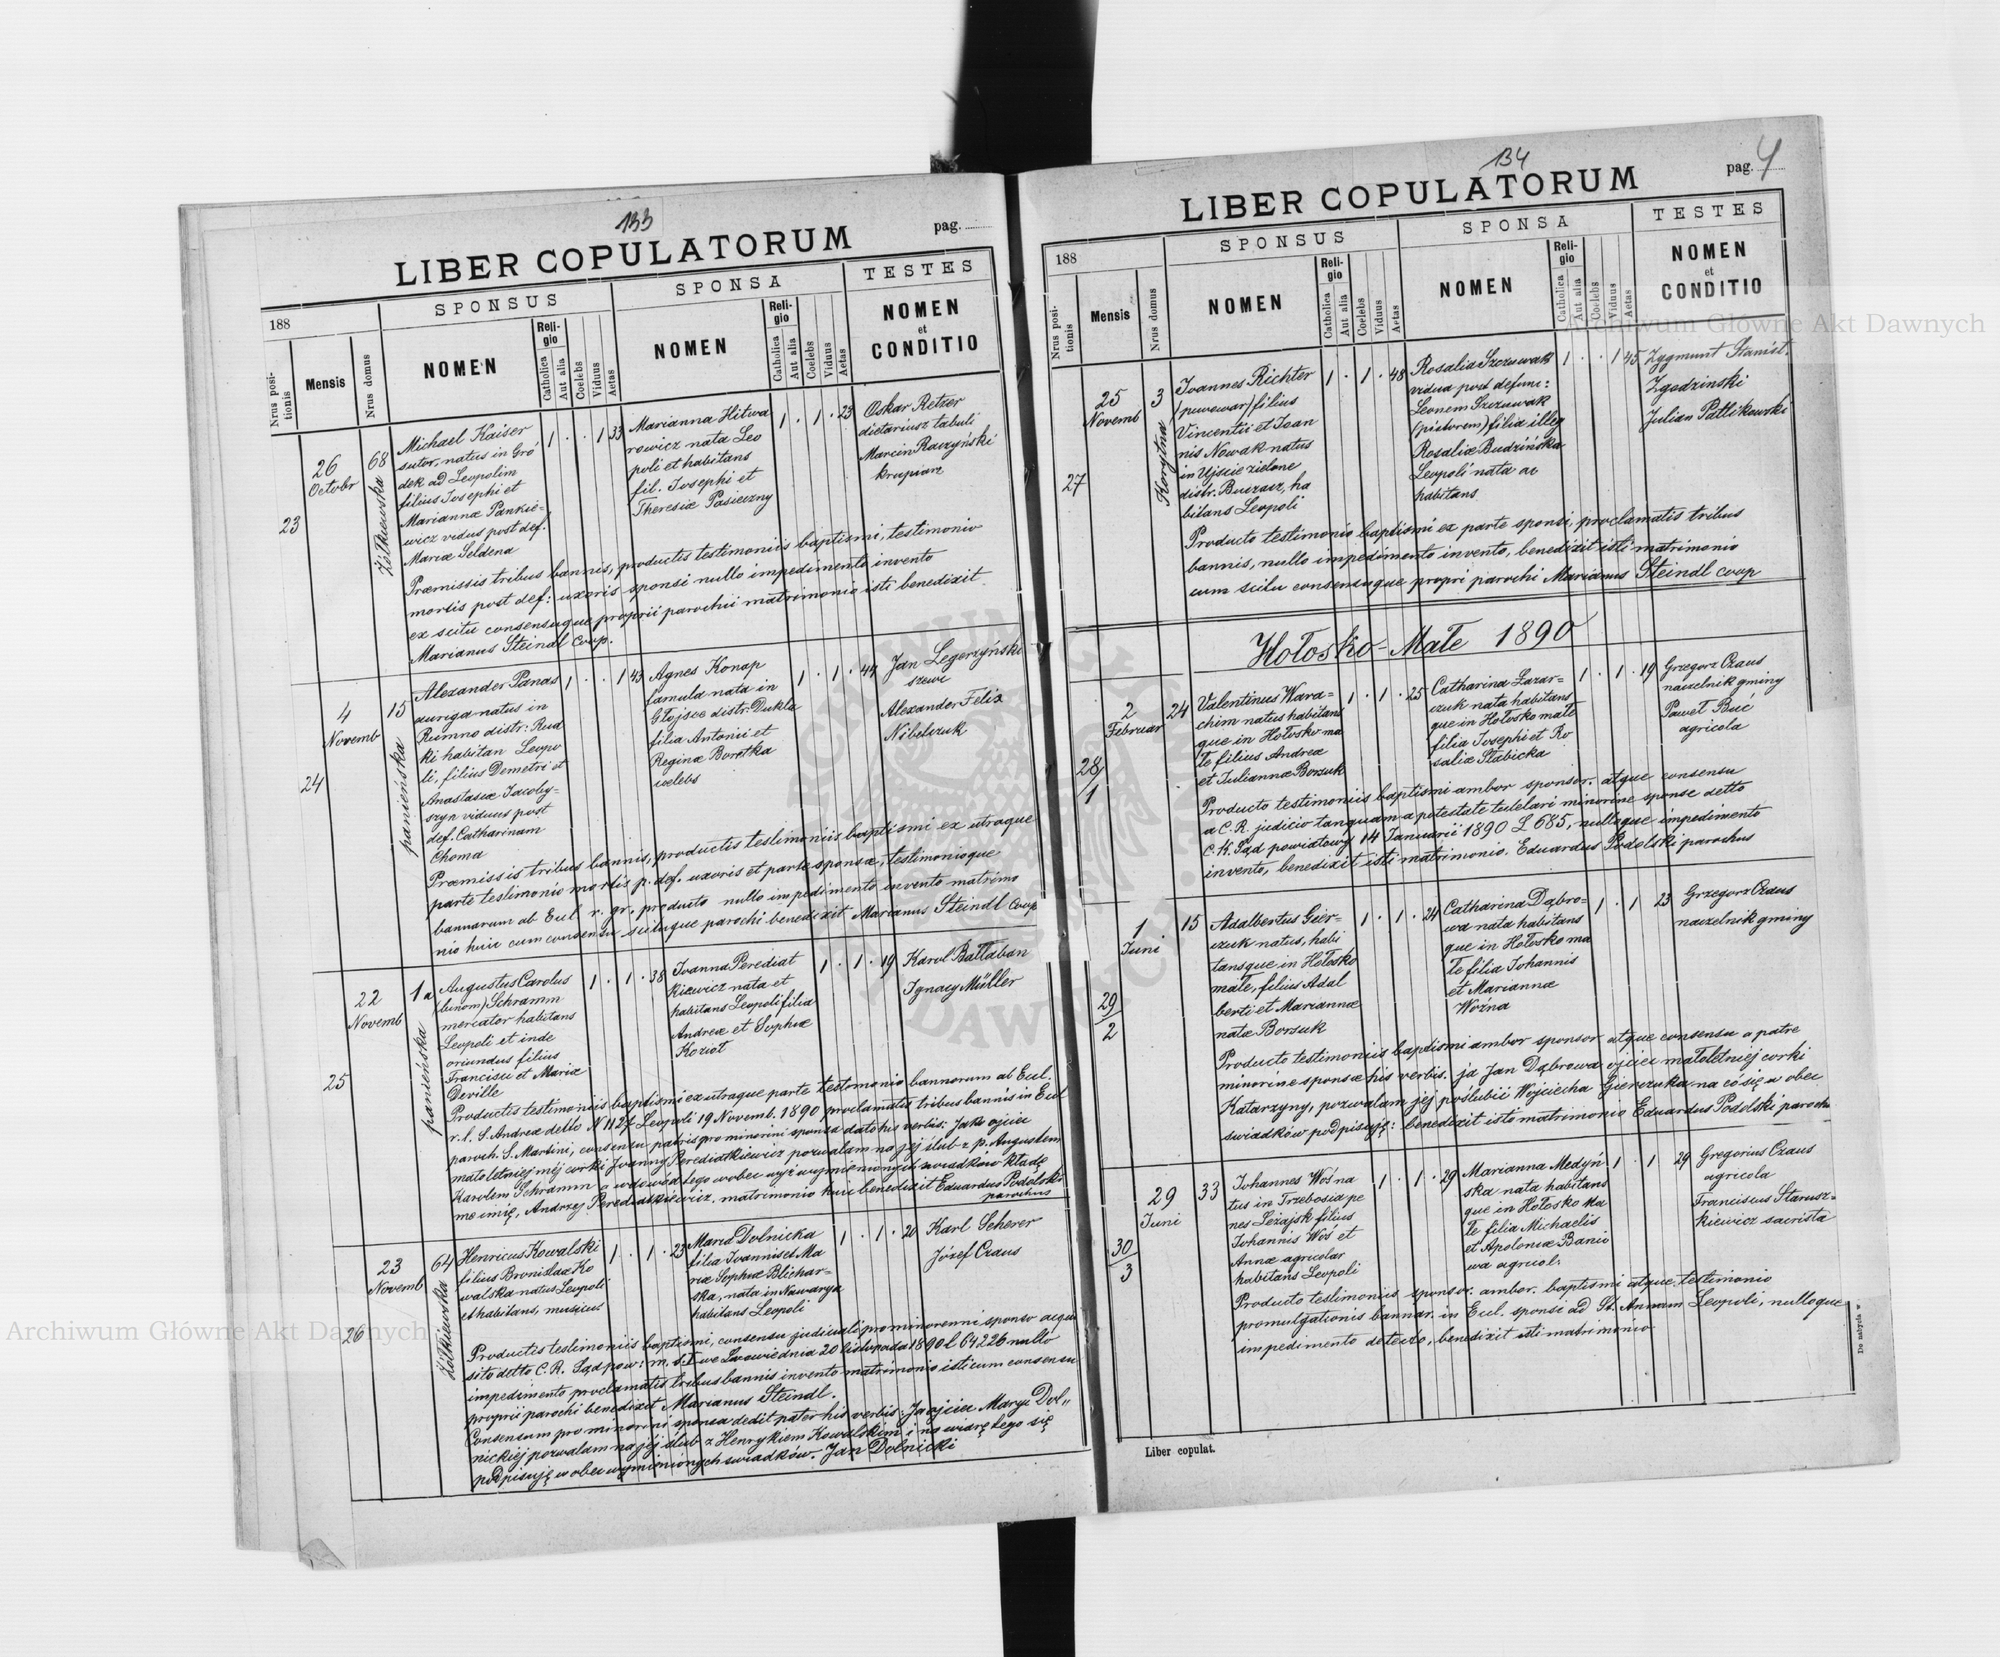 133
pag.
LIBER COPULATORUM
188
SPONSUS
SPONSA
TESTES
Nrus positionis
Mensis
Nrus domus
NOMEN
Religio
Catholica
Aut alia
Coelebs
Viduus
Aetas
NOMEN
Religio
Catholica
Aut alia
Coelebs
Viduus
Aetas
NOMEN
et
CONDITIO
23
26
Octobr
68
Żółkiewska
Michael Kaiser
sutor, natus in Gró
dek ad Leopolim
filius Josephi et
Mariannæ Pankie=
wicz vidus post def.
Mariæ Seldena
1 . . 1 33
Marianna Hitwa
rowicz nata Leo
poli et habitans
fil. Josephi et
Theresiæ Pasieczny
1 . 1 . 23
Oskar Retzer
dietariusz tabuli
Marcin Raczyński
krupiarz
Præmissis tribus bannis, productis testimoniis baptismi, testimonio
mortis post def: uxoris sponsi nullo impedimento invento
ex scitu consensuque proprii parochii matrimonio isti benedixit
Marianus Steindl Coop.
24
4
Novemb
15
panieńska
Alexander Panas
auriga natus in
Rumno distr: Rud
ki habitan Leopo
li, filius Demetri et
Anastasiæ Jacoby=
szyn viduus post
def. Catharinam
Choma
1 . . 1 43
Agnes Konap
famula nata in
Głojsce distr: Dukla
filia Antonii et
Reginæ Boretka
icelebs
1 . 1 . 44
Jan Legerzyński
szewc
Alexander Felix
Nibelczuk
Præmissis tribus bannis, productis testimoniis baptismi ex utraque
parte testimonio mortis p. def. uxoris et parte sponsæ, testimonioque
bannarum ab Eccl. r. gr. producto nullo impedimento invento matrimo
nio huic cum consensu scituque parochi benedixit Marianus Steindl Coop
25
22
Novemb
1a
panieńska
Augustus Carolus
(binom) Schramm
mercator habitans
Leopoli et inde
oriundus filius
Francisci et Mariæ
Deville
1 . 1 . 38
Joanna Perediat
kiewicz nata et
habitans Leopoli filia
Andreæ et Sophiæ
Kozioł
1 . 1 . 19
Karol Bałłaban
Ignacy Müller
Productis testimoniis baptismi ex utraque parte testimonio bannorum ab Eccl.
r. l. S. Andreæ detto N 1127 Leopoli 19 Novemb. 1890 proclamatis tribus bannis in Eccl
paroch. S. Martini, consensu patris pro minorini sponsa dato his verbis: Jako ojciec
małoletniej mej corki Joanny Perediatkiewicz pozwalam na jej ślub z p. Augustem
Karolem Schramm a w dowód tego wobec wyż wymienionych swiadków kładę
me imię, Andrzej Perediatkiewicz, matrimonio huic benedixit Eduardus Podolski
parochus
26
23
Novemb
64
Żółkiewska
Henricus Kowalski
filius Bronislaæ Ko
walska natus Leopoli
et habitans, musicus
1 . 1 . 23
Maria Dolnicka
filia Joannis et Ma
riæ Sophiæ Blichar=
ska, nata in Nawarya
habitans Leopoli
1 . 1 . 20
Karl Scherer
Józef Czaus
Productis testimoniis baptismi, consensu judiciali pro minorenni sponso acqui
sito detto C. R. Sąd pow: m. d. I we Lwowie dnia 20 listopada 1890 l 64226 nullo
impedimento proclamatis tribus bannis invento matrimonio isti cum consensu
proprii parochi benedixit Marianus Steindl.
Consensum pro minorini sponsa dedit pater his verbis: Ja ojciec Maryi Dol=
nickiej pozwalam na jej ślub z Henrykiem Kowalskim i na wiarę tego się
podpisuję w obec wymienionych swiadków. Jan Dolnicki
134
pag. 4
LIBER COPULATORUM
188
SPONSUS
SPONSA
TESTES
Nrus positionis
Mensis
Nrus domus
NOMEN
Religio
Catholica
Aut alia
Coelebs
Viduus
Aetas
NOMEN
Religio
Catholica
Aut alia
Coelebs
Viduus
Aetas
NOMEN
et
CONDITIO
27
25
Novemb
3
Korytna
Joannes Richter
(piwowar) filius
Vincentii et Joan
nis Nowak natus
in Ujście zielone
distr. Buczacz, ha
bitans Leopoli
1 . 1 . 48
Rosalia Szczuwak
vidua post defunc:
Leonem Szczuwak
(pictorem) filia illeg
Rosaliæ Budzińska
Leopoli nata ac
habitans
1 . . 1 45
Zygmunt Stanisł.
Zgodzinski
Julian Patlikowski
Producto testimonio baptismi ex parte sponsi, proclamatis tribus
bannis, nullo impedimento invento, benedixit isti matrimonio
cum scitu consensuque propri parochi Marianus Steindl coop
Hołosko-Małe 1890
28/1
2
Februar
24
Valentinus Wara=
chim natus habitans
que in Hołosko ma
łe filius Andreæ
et Juliannæ Borsuk
1 . 1 . 25
Catharina Lazar=
czuk nata habitans
que in Hołosko małe
filia Josephi et Ro
saliæ Słabicka
1 . 1 . 19
Grzegorz Czaus
naczelnik gminy
Paweł Buć
agricola
Producto testimoniis baptismi ambor sponsor. atque consensu
a C. R. judicio tanquam a potestate tutelari minorine sponse detto
C. K. Sąd powiatowy 14 Januarii 1890 L 685, nulloque impedimento
invento, benedixit isti matrimonio. Eduardus Podolski parochus
29/2
1
Juni
15
Adalbertus Gier=
czuk natus, habi
tansque in Hołosko
małe, filius Adal
berti et Mariannæ
natæ Borsuk
1 . 1 . 24
Catharina Dąbro=
wa nata habitans
que in Hołosko ma
łe filia Johannis
et Mariannæ
Woźna
1 . 1 23
Grzegorz Czaus
naczelnik gminy
Producto testimoniis baptismi ambor sponsor atque consensu a patre
minorine sponsæ his verbis. ja Jan Dąbrowa ojciec małoletniej corki
Katarzyny, pozwalam jej poślubić Wojciecha Gierczuka na co się w obec
swiadków podpisuję: benedixit isto matrimonio Eduardus Podolski paroch
30/3
29
Juni
33
Johannes Woś na
tus in Trzebosia pe
nes Leżajsk filius
Johannis Woś et
Annæ agricolar
habitans Leopoli
1 . 1 . 29
Marianna Medyń
ska nata habitans
que in Hołosko Ma
łe filia Michaelis
et Apoloniæ Banio
wa agricol.
1 . 1 29
Gregorius Czaus
agricola
Franciscus Starusz=
kiewicz sacrista
Producto testimoniis sponsor. ambor. baptismi atque testimonio
promulgationis bannar. in Eccl. sponsi ad St. Annam Leopoli, nulloque
impedimento detecto, benedixit isti matrimonio
Liber copulat.
Do nabycia w
Archiwum Główne Akt Dawnych
Archiwum Główne Akt Dawnych